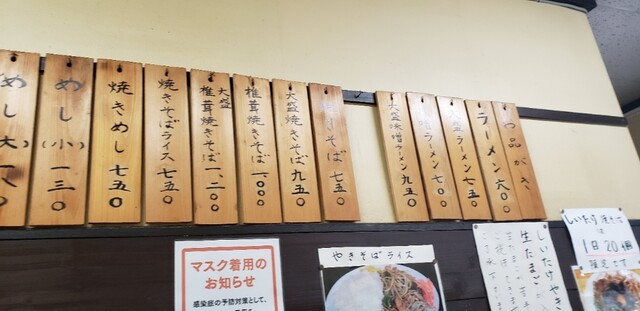 お品がき
ラーメン 六〇〇
大盛ラーメン 七五〇
ラーメン 七〇〇
大盛味噌ラーメン 九五〇
そば 七五〇
大盛焼きそば 九五〇
椎茸焼きそば 一、〇〇〇
大盛
椎茸焼きそば 一、二〇〇
焼きそばライス 七五〇
焼きめし 七五〇
めし(小) 一三〇
めし(大) 一八〇
マスク着用の
お知らせ
感染症の予防対策として、
やきそばライス
しいたけやき
生たまごが
1日20個
限定です